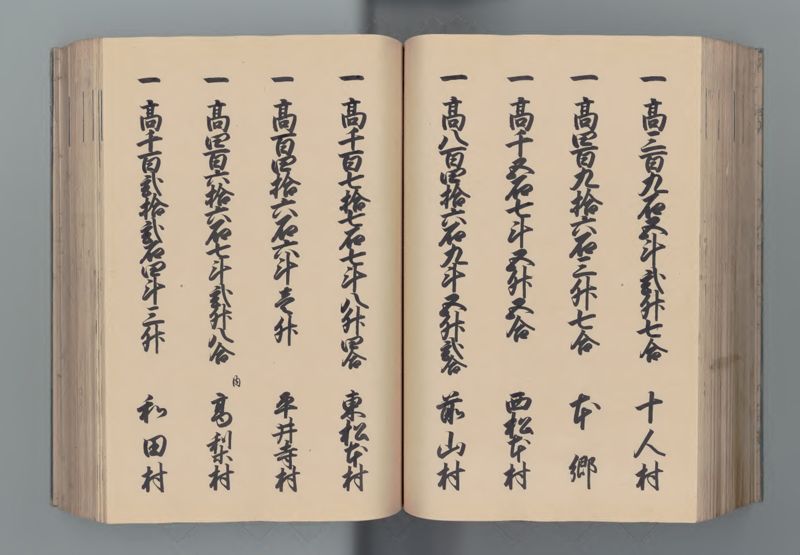 一 高三百九石五斗弐升七合 十人村
一 高四百九拾六石三升七合 本郷
一 高千五石七斗五升五合 西松本村
一 高八百四拾六石九斗五升弐合 前山村
一 高千百七拾七石七斗八升四合 東松本村
一 高百四拾六石六斗壱升 平井寺村
一 高四百六拾六石七斗弐升八合 高梨村
内
一 高千百弐拾弐石四斗三升 和田村